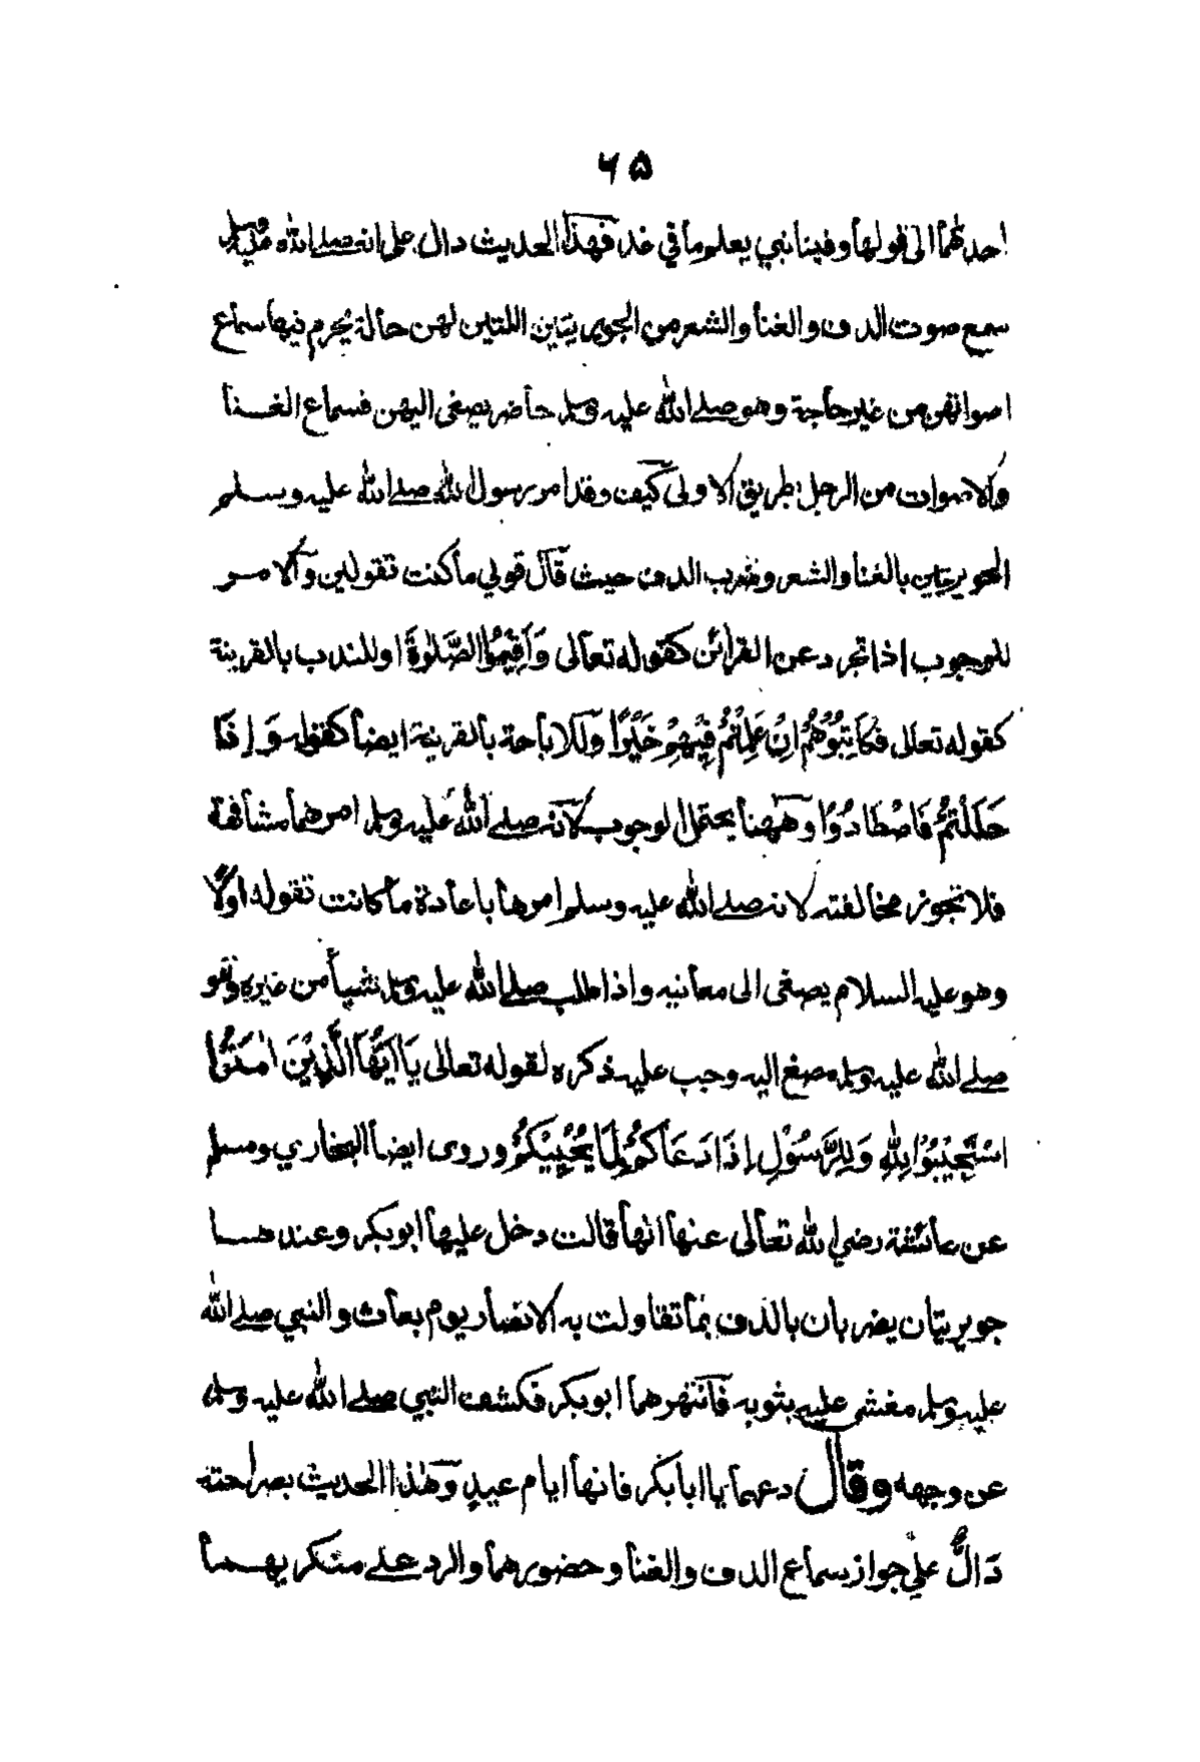 ۶۵
احدهما الى قولها وفينا نبي يعلم ما في غد فهذا الحديث دال على انه صلے الله عليه وسلم
سمع صوت الدف والغنا والشعر من الجويريتين اللتين لهن حالة يحرم فيها سماع
اصواتهن من غير حاجة وهو صلے الله عليه وسلم حاضر يصغى اليهن فسماع الغنا
والاصوات من الرجل بطريق الاولى كيف وقد امر رسول الله صلے الله عليه وسلم
الجويريتين بالغنا والشعر وضرب الدف حيث قال قولي ما كنت تقولين والامر
للوجوب اذا تجرد عن القرائن كقوله تعالى وَاَقِيْمُوا الصَّلٰوةَ او للندب بالقرينة
كقوله تعالى فَكَاتِبُوْهُمْ اِنْ عَلِمْتُمْ فِيْهِمْ خَيْرًا وللاباحة بالقرينة ايضا كقوله وَاِذَا
حَلَلْتُمْ فَاصْطَادُوْا وههنا يحتمل الوجوب لانه صلے الله عليه وسلم امرهما مشافهة
فلا تجوز مخالفته لانه صلے الله عليه وسلم امرها باعادة ما كانت تقوله اولًا
وهو عليه السلام يصغى الى معانيه واذا طلب صلے الله عليه وسلم شيأ من غيره وهو
صلے الله عليه وسلم مصغ اليه وجب عليه ذكره لقوله تعالى يَا اَيُّهَا الَّذِيْنَ اٰمَنُوا
اسْتَجِيْبُوْا لِلّٰهِ وَلِلرَّسُوْلِ اِذَا دَعَاكُمْ لِمَا يُحْيِيْكُمْ وروى ايضا البخاري ومسلم
عن عائشة رضي الله تعالى عنها انها قالت دخل عليها ابو بكر وعندها
جويريتان يضربان بالدف بما تقاولت به الانصار يوم بعاث والنبي صلے الله
عليه وسلم مغشى عليه بثوبه فانتهرهما ابو بكر فكشف النبي صلے الله عليه وسلم
عن وجهه وقال دعهما يا ابا بكر فانها ايام عيدٍ وهٰذا الحديث بصراحته
دَالٌّ على جواز سماع الدف والغنا وحضورهما والرد علے منكريهما